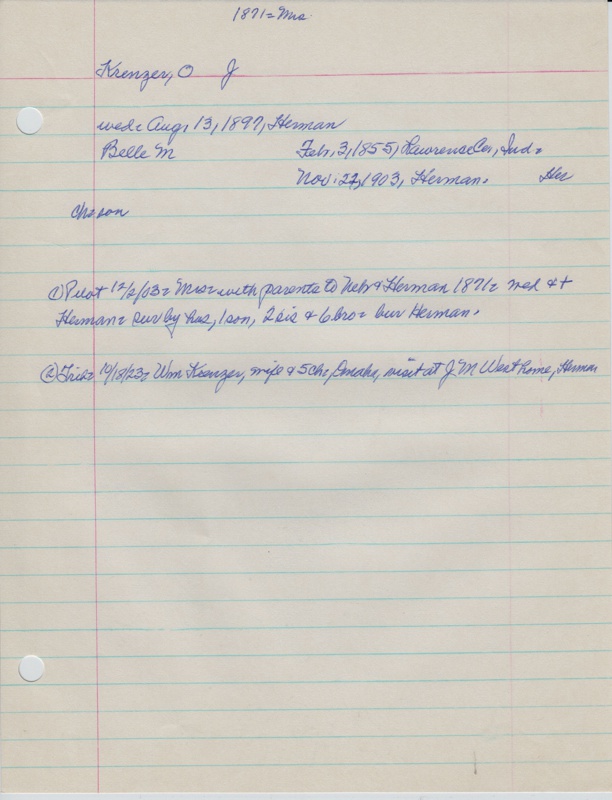 1871= Mrs.
Krenzer, O J
wed= Aug, 13, 1897, Herman
Belle M Feb, 3, 1855, Lawrence Co, Ind=
Nov. 22, 1903, Herman. Her
ch= son
① Pilot 12/2/03= Mrs= with parents to Nebr & Herman 1871= wed & +
Herman= sur by hus, 1 son, 2 sis & 6 bro= bur Herman.
② Trib= 10/18/23= Wm Krenzer, wife & 5 ch, Omaha, visit at J M West home, Herman